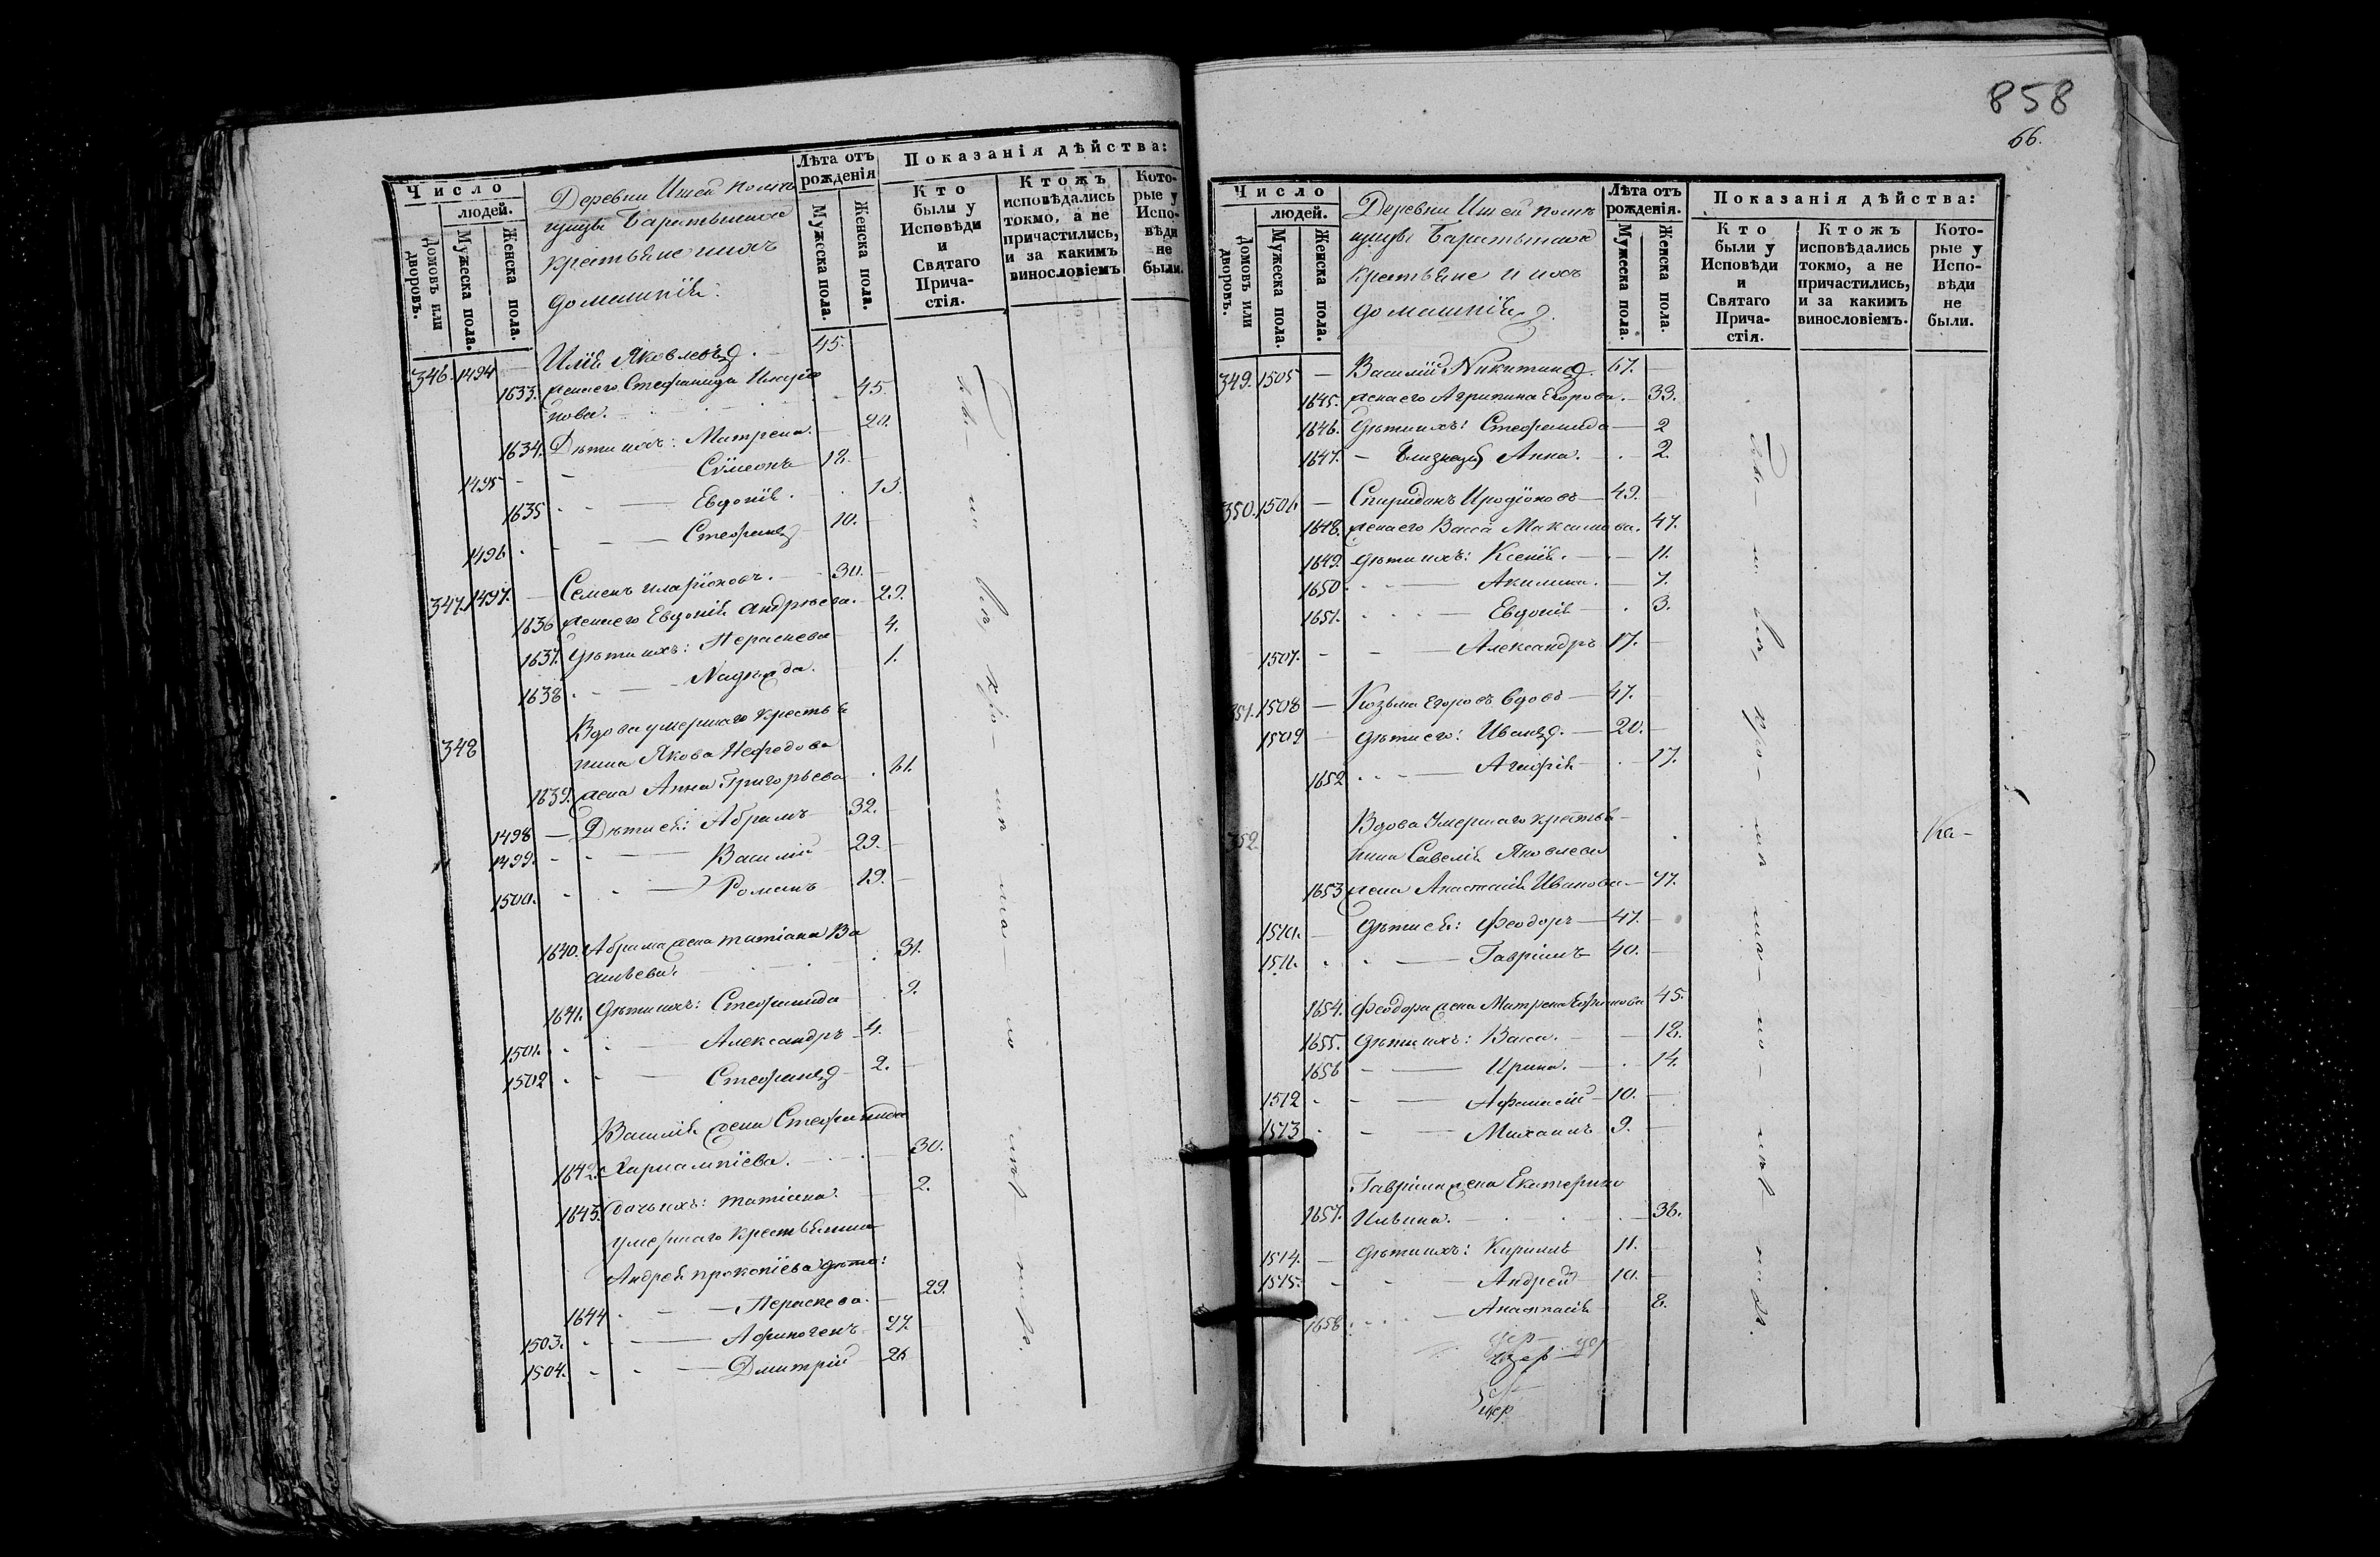 Число
людей.
Домовъ или дворовъ.
Мужеска пола.
Женска пола.
Деревни
крестьяне ихъ
домашнія:
Лѣта отъ рожденія
Мужеска пола.
Женска пола.
Показанія дѣйства:
Кто были у Исповѣди и Святаго Прича-стія.
Ктожъ исповѣдались токмо, а не причастились, и за какимъ винословіемъ
Кото-рые у Испо-вѣди не были.
346. 1494 — Илія Яковлевъ. — 45.
1633. жена его Стефанида 45.
нова.
1634. Дѣти ихъ: Матрена. — 20.
1495 - - — Сѵмеонъ 18. -
1635 - - — Евдокія. 13.
1496 - - — Стефанъ 10. -
347. 1497. — Семенъ Иларіоновъ. — 30. -
1636 жена его Евдокія Андрѣева. — 29.
1637. дѣти ихъ: Параскева — 4.
1638 - — Надежда. — 1.
348 Вдова умершаго крестья
нина Якова Нефедова
1639. жена Анна Григорьева — 61.
1498 — Дѣти ея: Абрамъ 32. -
1499. - - — Василій 29. -
1500. - - — Романъ 19. -
1640. Абрама жена Татіана Ва
сильева. 31.
1641. дѣти ихъ: Стефанида 9.
1501. - - — Александръ — 4. -
1502 - - — Стефанъ — 2. -
Василія жена Стефанида
1642. Харлампіева. 30.
1643. дочь ихъ: Татіана. — 2.
умершаго крестьянина
Андрея Прокопіева дѣти:
1644 - - — Параскева. — 29.
1503. - - — Афиногенъ 27. -
1504. - - — Дмитрій 26
858
66.
Число
людей.
Домовъ или дворовъ.
Мужеска пола.
Женска пола.
Деревни
крестьяне и ихъ
домашнія.
Лѣта отъ рожденія.
Мужеска пола.
Женска пола.
Показанія дѣйства:
Кто были у Исповѣди и Святаго Прича-стія.
Ктожъ исповѣдались токмо, а не причастились, и за какимъ винословіемъ.
Кото-рые у Испо-вѣди не были.
349. 1505 — Василій Никитинъ. 67. —
1645. жена его Агрипина Егорова. — 33.
1646. дѣти ихъ: Стефанида — 2
1647. — близнецы Анна. — 2.
350. 1506. — Спиридонъ Иродіоновъ — 49. —
1648. жена его Васса Максимова. 47.
1649. дѣти ихъ: Ксенія. — 11.
1650. - — Акилина. — 7.
1651. - — Евдокія — 3.
1507. - - — Александръ 17. —
351. 1508 — Козьма Егоровъ вдовъ — 47. —
1509 — дѣти его: Иванъ. — 20. —
1652 - — Агафія — 17.
352. Вдова умершаго крестья-
нина Савелія Яковлева
1653 жена Анастасія Иванова — 77.
1510. — дѣти ея: Феодоръ — 47. —
1511. - - — Гавріилъ 40. —
1654. Феодора жена Матрена 45.
1655. дѣти ихъ: Васса. — 18.
1656 - — Ирина. — 14.
1512 - - — Афанасій — 10. —
1513 - - — Михаилъ 9. —
Гавріила жена Екатерина
1657. Ильина. — 36.
1514. — дѣти ихъ: Кирилъ 11. —
1515. - - — Андрей — 10. —
1658 - — Анастасія 8.